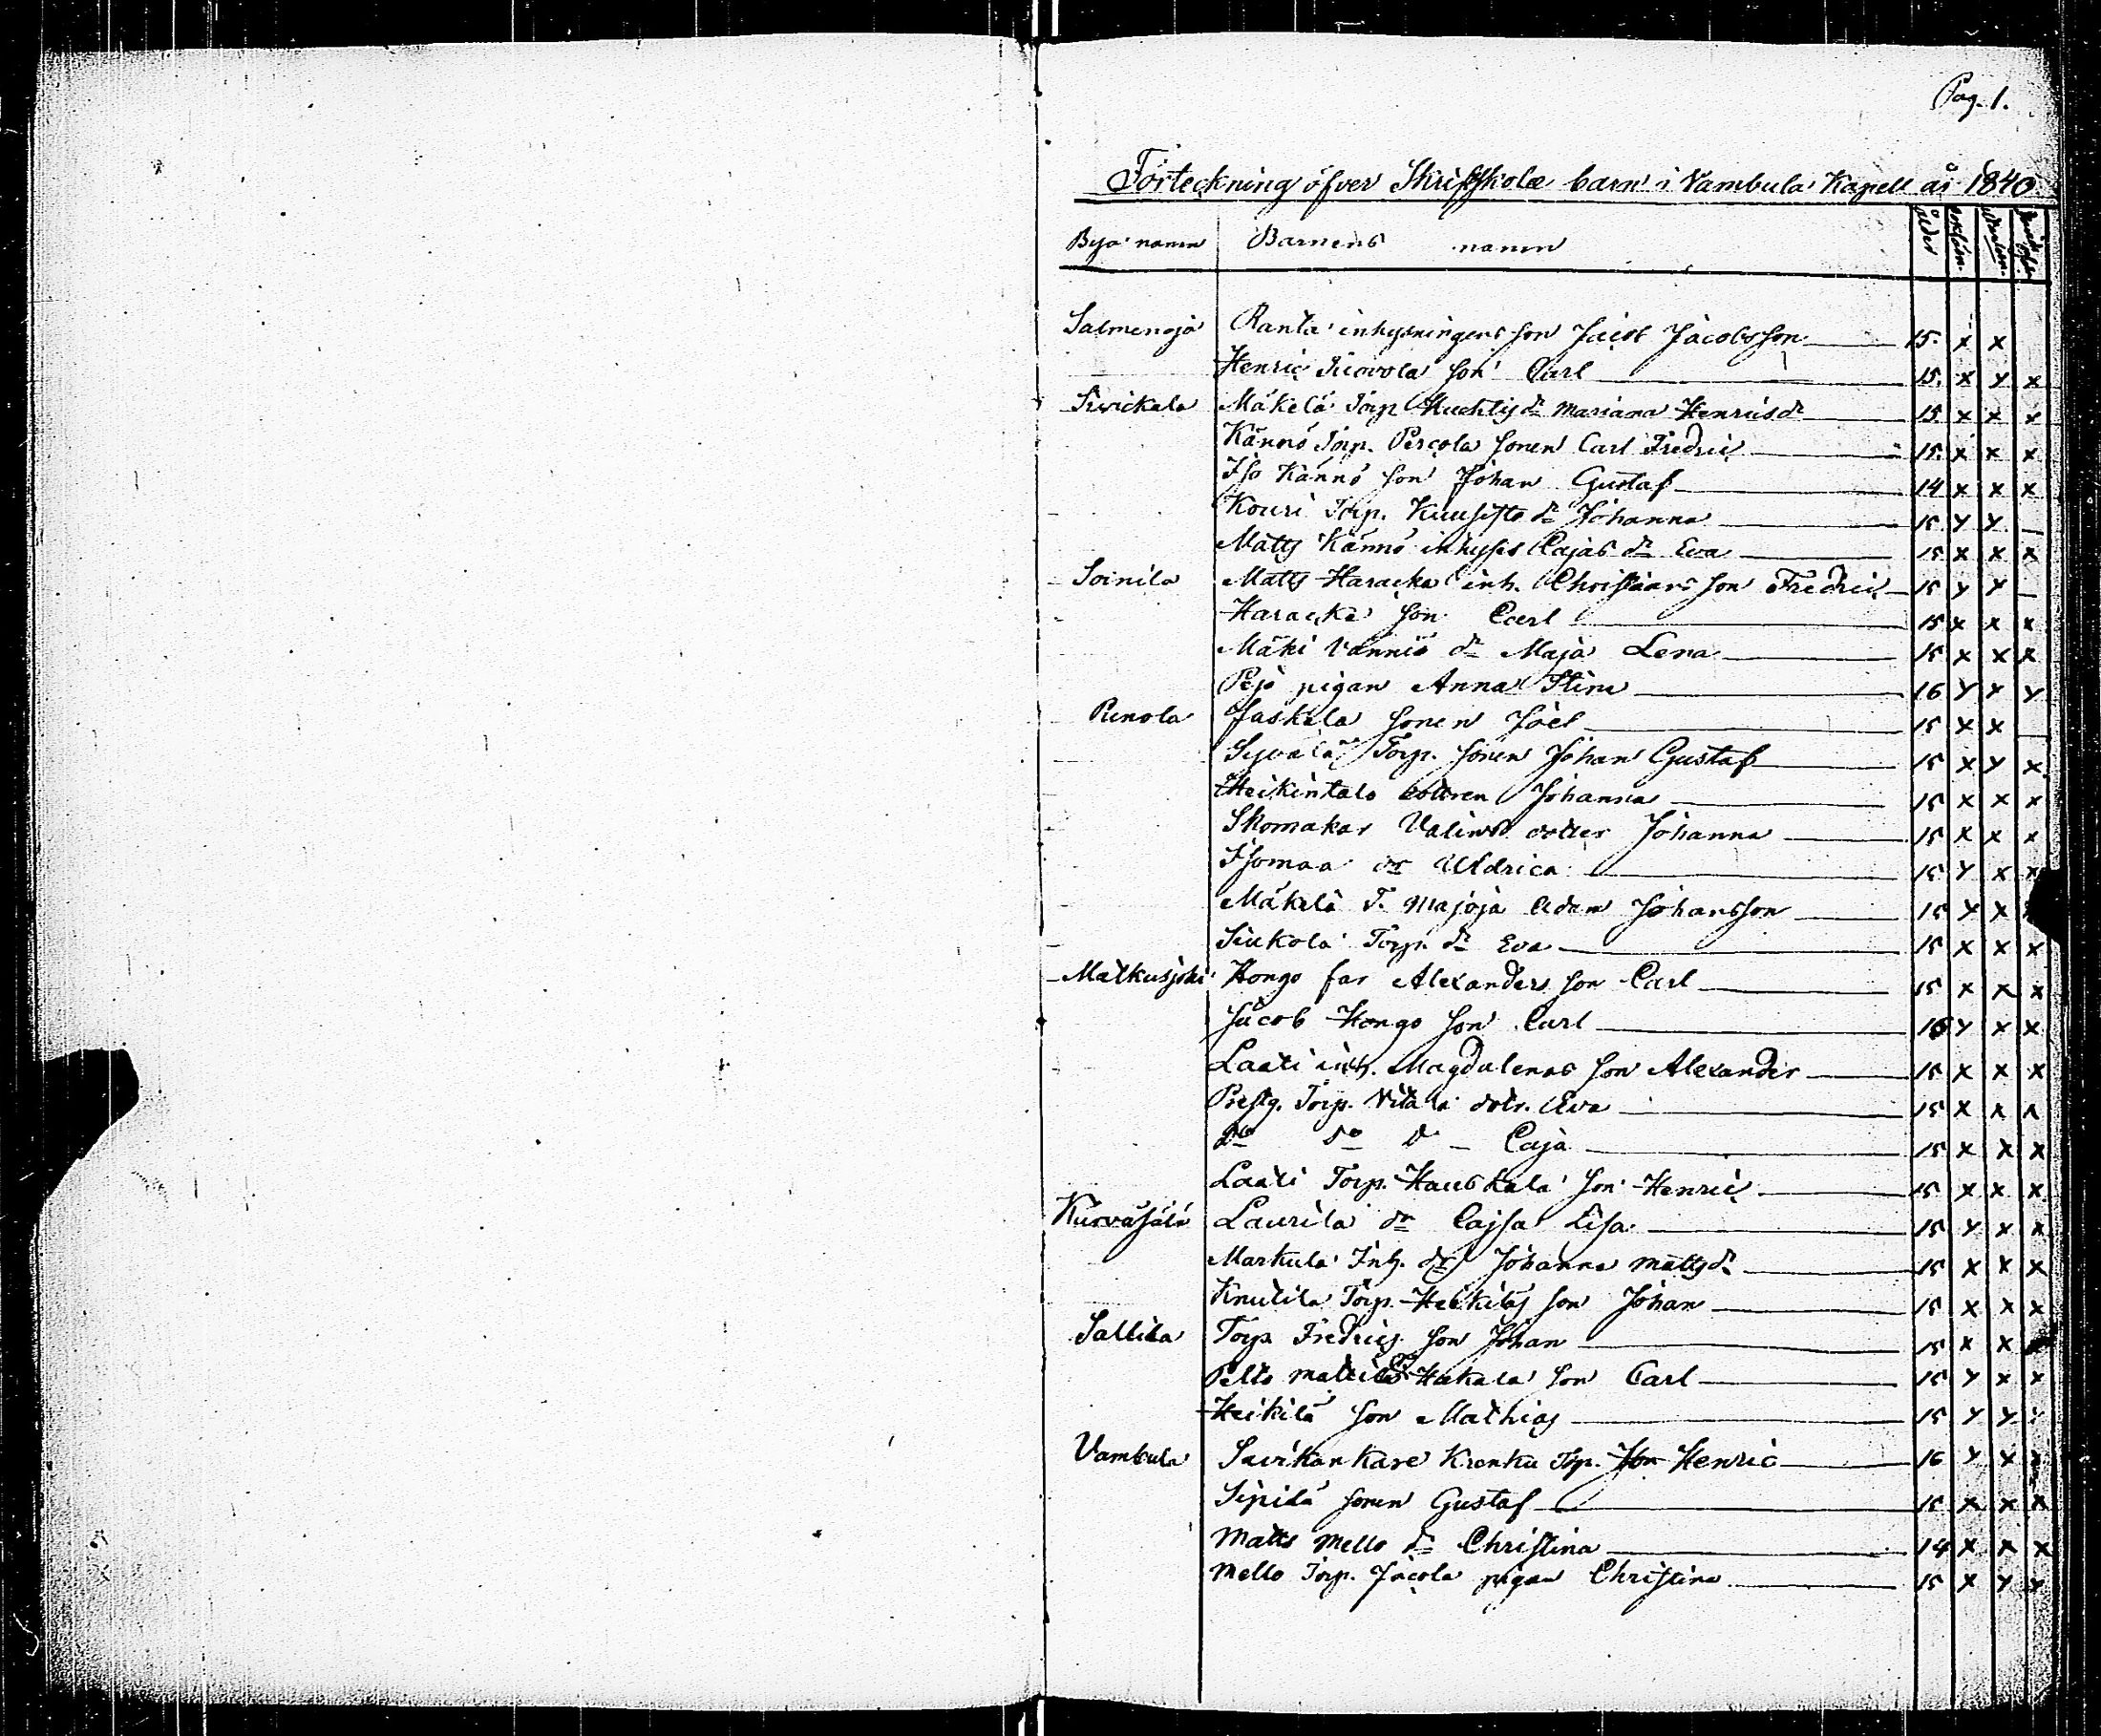 Pag. 1.
Förteckning öfver Skriftskole barn i Vambula Kapell år 1840.
Bya namn Barnens namn Ålder
Salmenoja Ranta inhysningens son Jacob Jacobsson 15. x x
Henric son Carl 15. x x x
Sirvickala Mäkelä Torp. dr Mariana Henricsdr 15 x x x
Kännö Torp. Percola sonen Carl Fredric 15. x x x
Iso Kännö son Johan Gustaf 14 x x x
Kouri Torp. Kuusisto dr Johanna 15 x x —
Matts Kännö inhyses Cajas dr Eva 15 x x x
Soinila Matts Haracka inh. Christians son Fredric 15 x x —
Haracka son Carl 15 x x x
Mäki Vänniö dr Maja Lena 15 x x x
Pejo pigan Anna Stina 16 x x x
Renola Jaskala sonen Joel 15 x x —
Syvälä Torp. sonen Johan Gustaf 15 x x x
Heikintalo dottren Johanna 15 x x x
Skomakar Valinds dotter Johanna 15 x x x
Isomaa dr Uldrica 15 x x x
Mäkelä T. Majoja Adam Johansson 15 x x
Siukola Torp. dr Eva 15 x x x
Matkusjoki Hongo far Alexanders son Carl 15 x x x
Jacob Hongo son Carl 16 x x x
Laati inh. Magdalenas son Alexander 15 x x x
Prestg. Torp. Vitala dotr. Eva 15 x x x
Do Do D — Caja 15 x x x
Laati Torp. Hauskala son Henric 15 x x x
Kurvasälä Laurila dr Cajsa Lisa 15 x x x
Markula Inh. dr Johanna Mattsdr 15 x x x
Knutila Torp. Heikiläs son Johan 15 x x x
Sallila Torp. Fredrics son Johan 15 x x
Pelto Mattila Hakala son Carl 15 x x x
Heikilä son Mathias 15 x x x
Vambula Savikankare Kranku Torp. son Henric 16 x x x
Sipilä sonen Gustaf 15 x x x
Matts Mello dr Christina 14 x x x
Mello Torp. Jacola pigan Christina 15 x x x